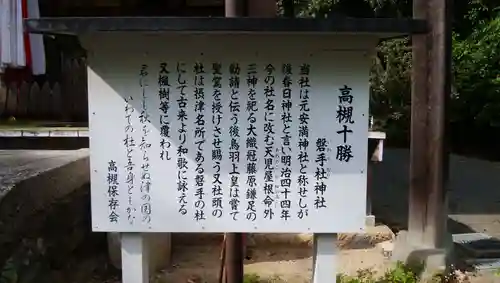 高槻十勝
磐手杜神社
当社は元安満神社と称せしが
後春日神社と言い明治四十四年
今の名に改む天児屋根命外
三神を祀る大織冠藤原鎌足の
勧請と伝う後鳥羽上皇は嘗て
聖駕を授けさせ賜う又社頭の
杜は摂津名所である磐手の杜
にして古来より和歌に詠える
又槻樹等に覆われ
君にしも秋を知らせぬ津の国の
いわての杜を吾身ともがな
高槻保存会